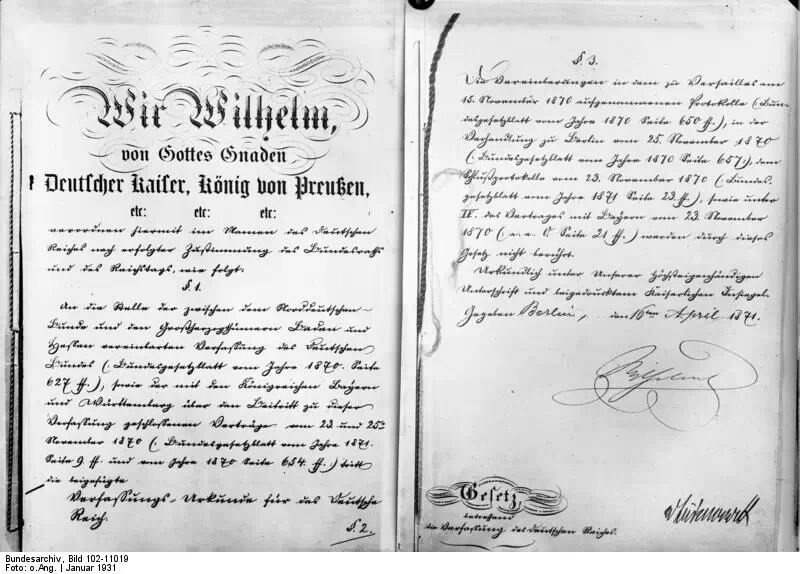 Wir Wilhelm,
von Gottes Gnaden
Deutscher Kaiser, König von Preußen,
etc: etc: etc:
verordnen hiermit im Namen des Deutschen
Reiches nach erfolgter Zustimmung des Bundesraths
und des Reichstags, wie folgt:
§ 1.
An die Stelle der zwischen dem Norddeutschen
Bunde und den Großherzogthümern Baden und
Hessen vereinbarten Verfassung des Deutschen
Bundes (: Bundesgesetzblatt vom Jahre 1870. Seite
627 ff :), sowie der mit den Königreichen Bayern
und Württemberg über den Beitritt zu dieser
Verfassung geschlossenen Verträge vom 23. und 25ten
November 1870 (: Bundesgesetzblatt vom Jahre 1871.
Seite 9. ff. und vom Jahre 1870 Seite 654. ff. :) tritt
die beigefügte
Verfassungs-Urkunde für das Deutsche
Reich.
§ 2.
§ 3.
Die Vereinbarungen in dem zu Versailles am
15. November 1870 aufgenommenen Protokolle (: Bun-
desgesetzblatt vom Jahre 1870 Seite 650 ff :), in der
Verhandlung zu Berlin vom 25. November 1870
(: Bundesgesetzblatt vom Jahre 1870 Seite 657 :), dem
Schlußprotokolle vom 23. November 1870 (: Bundes-
gesetzblatt vom Jahre 1871 Seite 23 ff :), sowie unter
IV. des Vertrages mit Bayern vom 23. November
1870 (: a. a. O Seite 21 ff :) werden durch dieses
Gesetz nicht berührt.
Urkundlich unter Unserer Höchsteigenhändigen
Unterschrift und beigedrucktem Kaiserlichen Insiegel.
Gegeben Berlin, den 16ten April 1871.
Wilhelm
Gesetz,
betreffend
die Verfassung des Deutschen Reiches.
v Bismarck
Bundesarchiv, Bild 102-11019
Foto: o.Ang. | Januar 1931